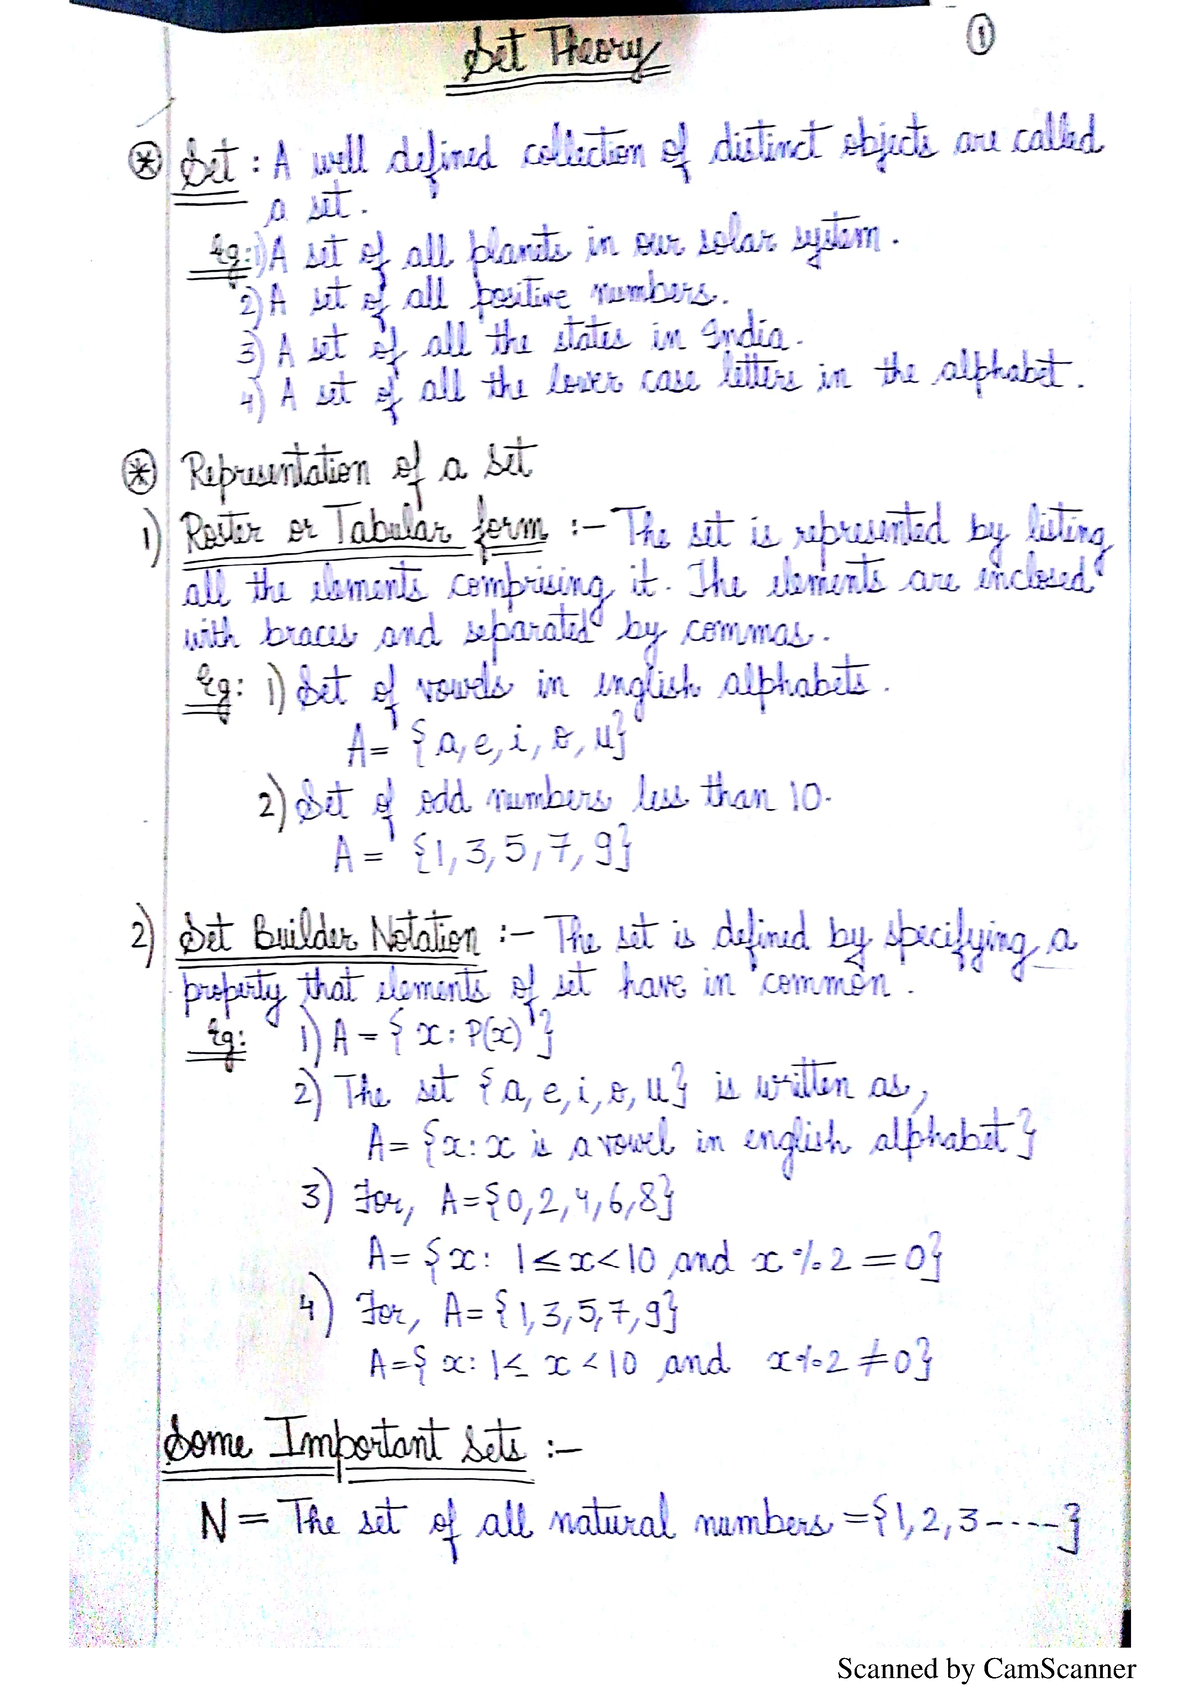 Set Theory
1
* Set : A well defined collection of distinct objects are called
a set.
Eg: 1) A set of all planets in our solar system.
2) A set of all positive numbers.
3) A set of all the states in India.
4) A set of all the lower case letters in the alphabet.
* Representation of a set
1) Roster or Tabular form :- The set is represented by listing
all the elements comprising it. The elements are enclosed
with braces and separated by commas.
Eg: 1) Set of vowels in english alphabets.
A = {a, e, i, o, u}
2) Set of odd numbers less than 10.
A = {1, 3, 5, 7, 9}
2) Set Builder Notation :- The set is defined by specifying a
property that elements of set have in common.
Eg: 1) A = { x : P(x) }
2) The set {a, e, i, o, u} is written as,
A = {x : x is a vowel in english alphabet}
3) For, A = {0, 2, 4, 6, 8}
A = {x : 1 ≤ x < 10 and x % 2 = 0}
4) For, A = {1, 3, 5, 7, 9}
A = { x : 1 ≤ x < 10 and x % 2 ≠ 0}
Some Important Sets :-
N = The set of all natural numbers = {1, 2, 3 -----}
Scanned by CamScanner